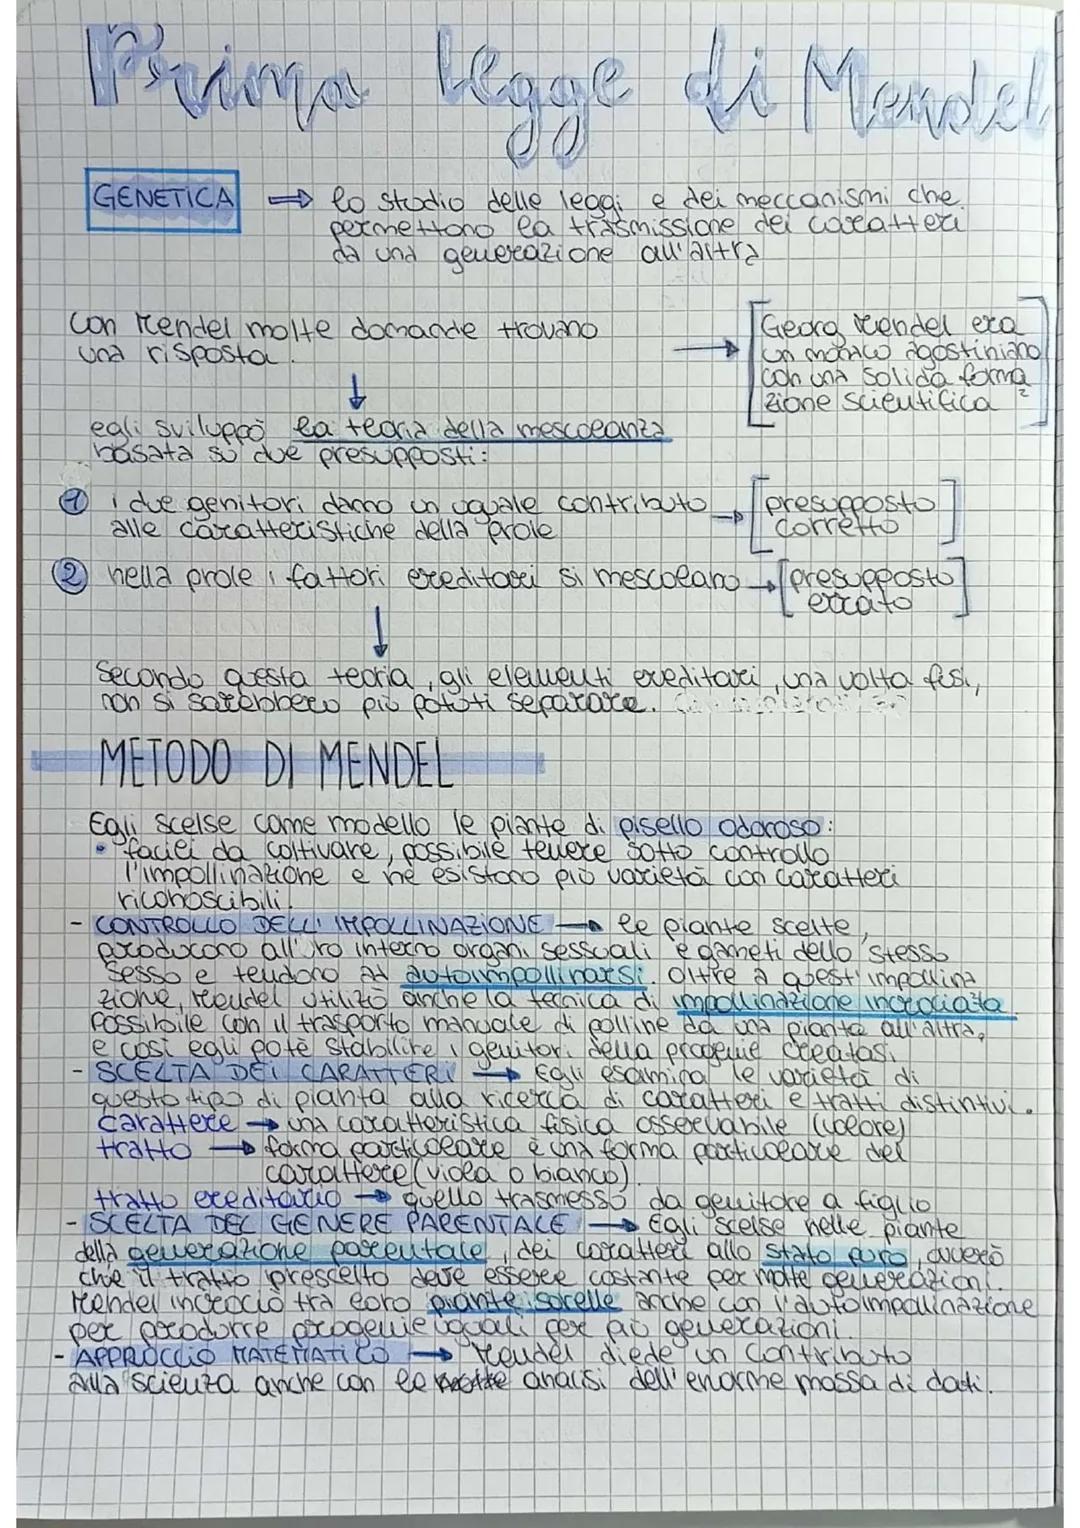 Prima legge di Mendel
GENETICA → lo studio delle leggi e dei meccanismi che
permettono la trasmissione dei caratteri
da una generazione all'altra
Con Mendel molte domande trovano
una risposta.
→ [Georg Mendel era
un monaco agostiniano
con una solida forma
zione scientifica]
↓
egli sviluppò la teoria della mescolanza
basata su due presupposti:
1 i due genitori danno un uguale contributo → [presupposto
alle caratteristiche della prole corretto]
2 nella prole i fattori ereditari si mescolano → [presupposto
errato]
↓
Secondo questa teoria, gli elementi ereditari, una volta fusi,
non si sarebbero più potuti separare.
METODO DI MENDEL
Egli scelse come modello le piante di pisello odoroso:
• facili da coltivare, possibile tenere sotto controllo
l'impollinazione e ne esistono più varietà con caratteri
riconoscibili.
- CONTROLLO DELL'IMPOLLINAZIONE → le piante scelte,
producono all'oro interno organi sessuali e gameti dello stesso
sesso e tendono ad autoimpollinarsi. Oltre a quest'impollina
zione, Mendel utilizzò anche la tecnica di impollinazione incrociata
possibile con il trasporto manuale di polline da una pianta all'altra,
e così egli potè stabilire i genitori della progenie creatasi.
- SCELTA DEI CARATTERI → Egli esamina le varietà di
questo tipo di pianta alla ricerca di caratteri e tratti distintivi.
carattere → una caratteristica fisica osservabile (colore)
tratto → forma particolare è una forma particolare del
carattere (viola o bianco).
tratto ereditario → quello trasmesso da genitore a figlio
- SCELTA DEL GENERE PARENTALE → Egli scelse nelle piante
della generazione parentale, dei caratteri allo stato puro, ovverò
che il tratto prescelto deve essere costante per molte generazioni.
Mendel incrociò tra loro piante sorelle anche con l'autoimpollinazione
per produrre progenie uguali per più generazioni.
- APPROCCIO MATEMATICO → Mendel diede un contributo
alla scienza anche con le analisi dell'enorme massa di dati.